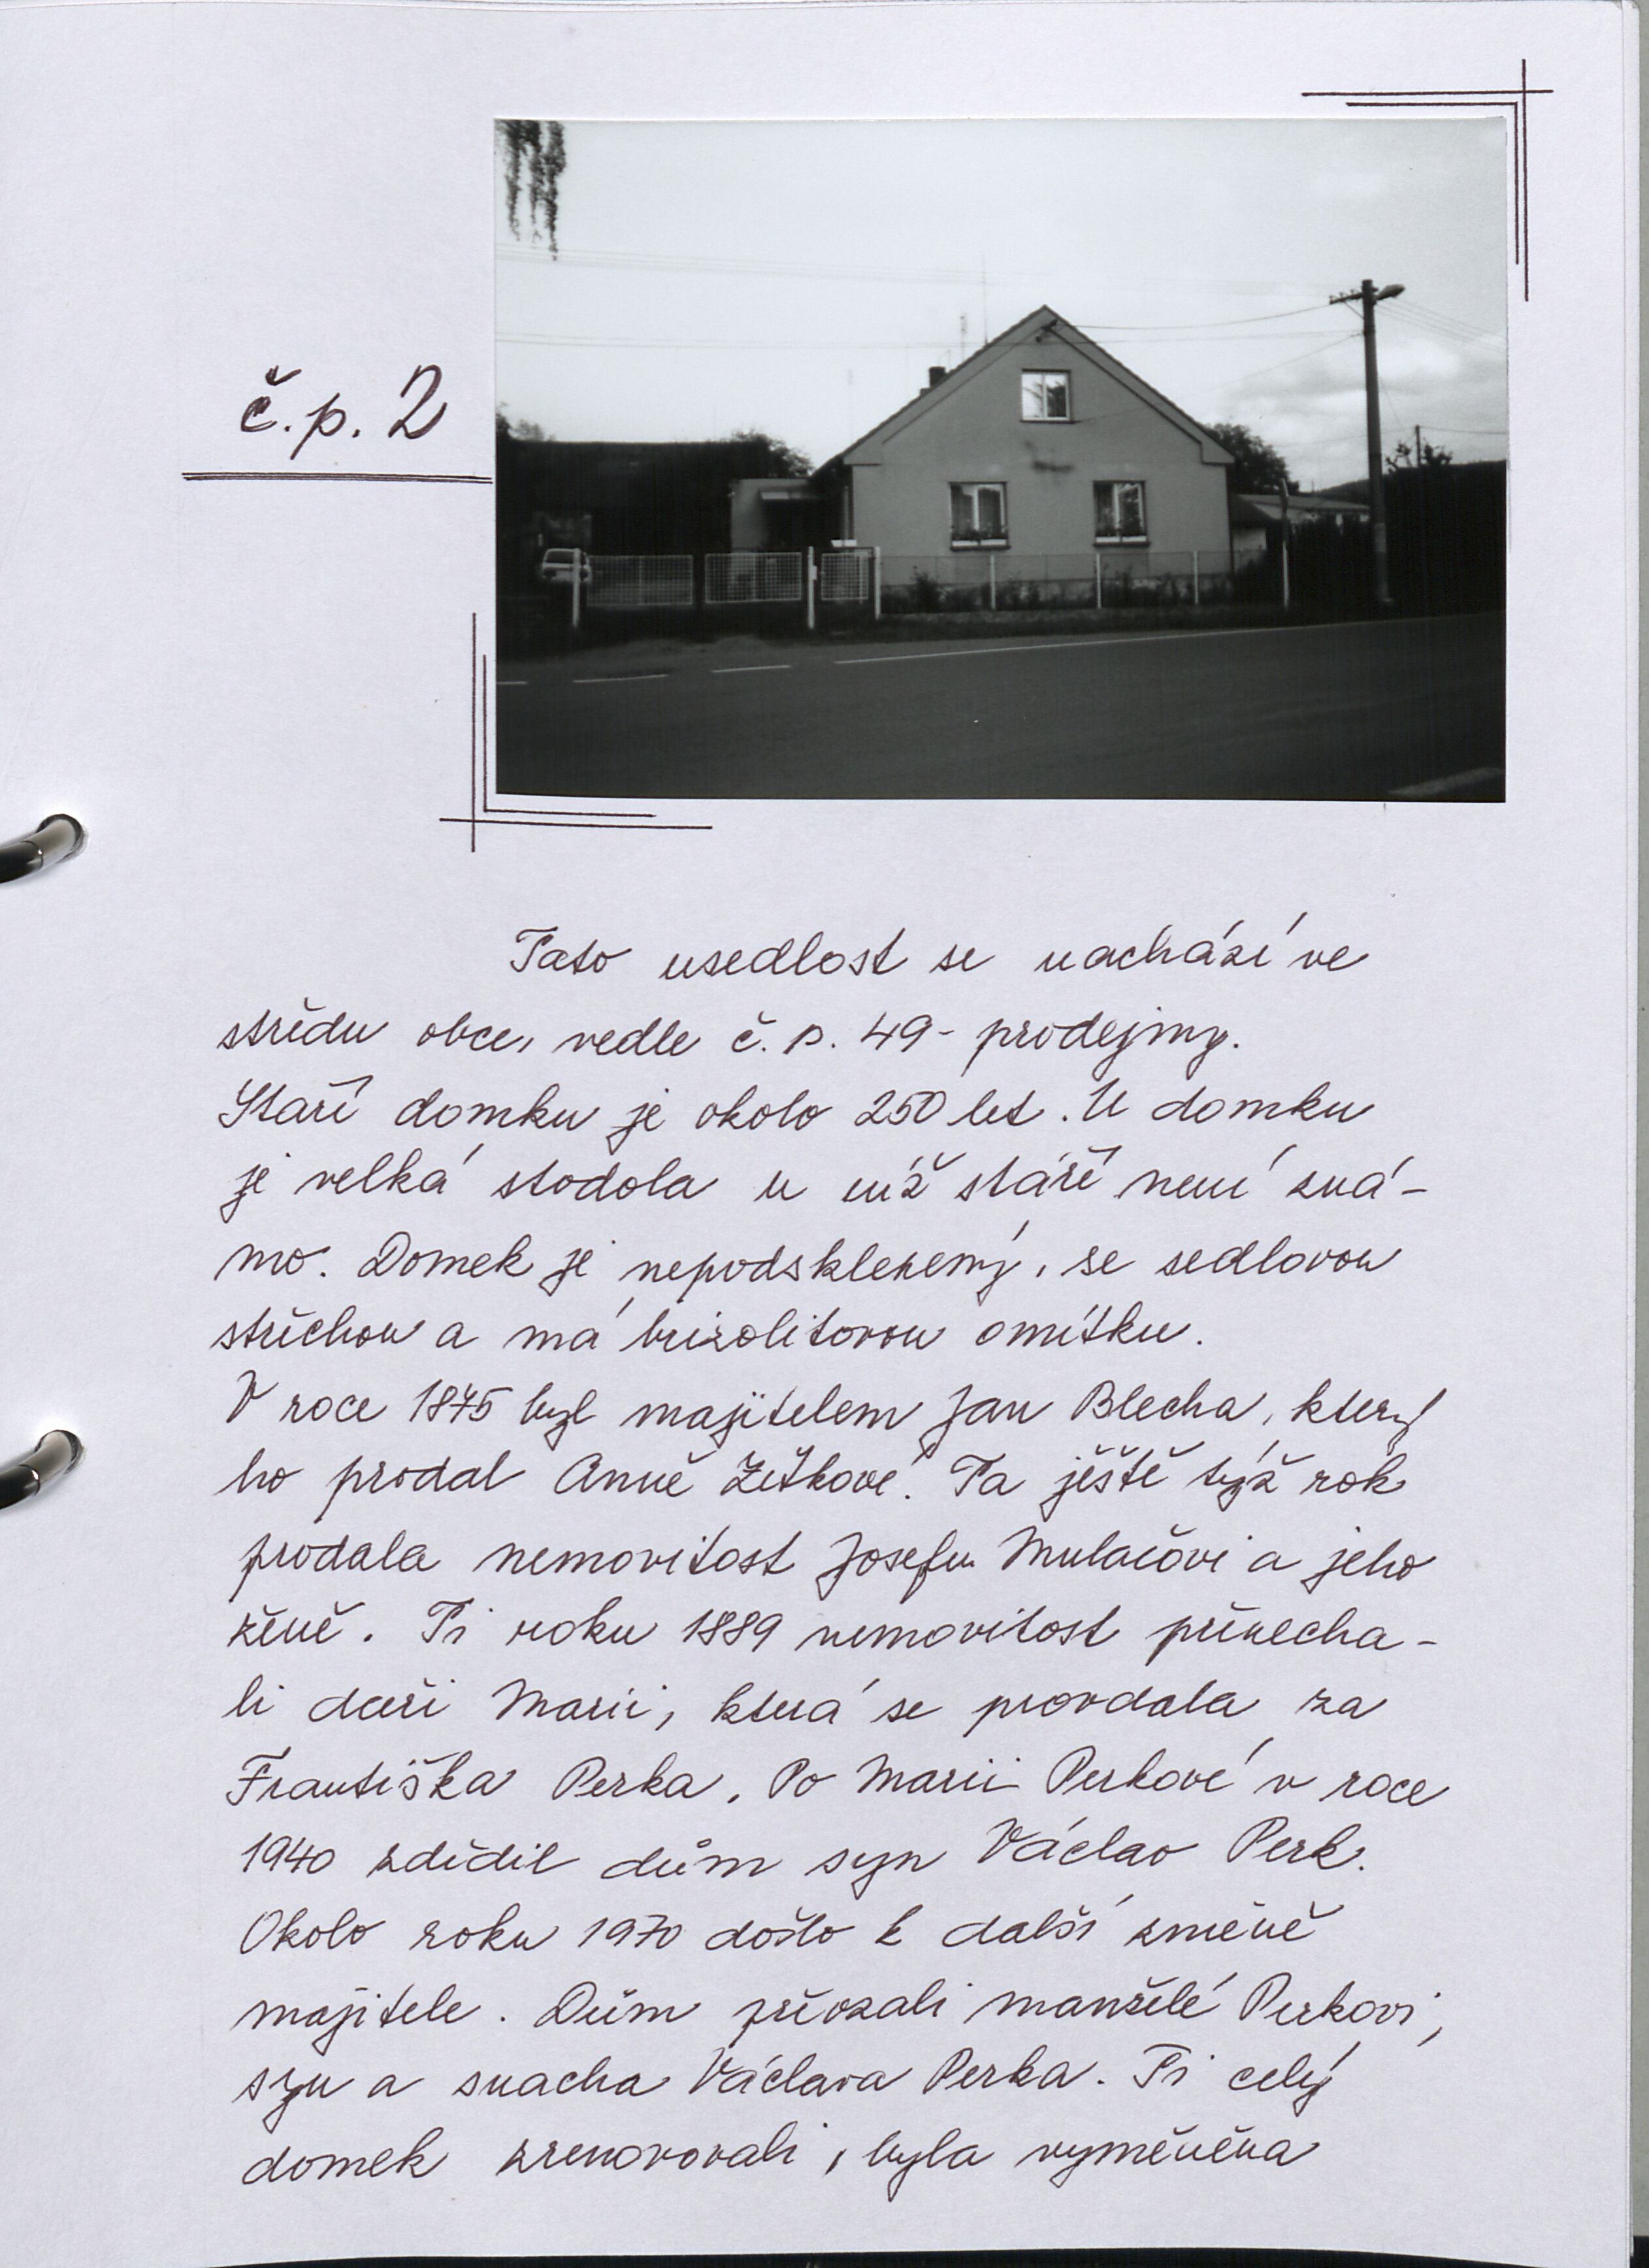 č. p. 2
Tato usedlost se nachází ve
středu obce, vedle č. p. 49 - prodejny.
Staří domku je okolo 250 let. U domku
je velká stodola u níž stáří není zná-
mo. Domek je nepodsklepený, se sedlovou
střechou a má brizolitovou omítku.
V roce 1875 byl majitelem Jan Blecha, který
ho prodal Anně Zítkové. Ta ještě týž rok
prodala nemovitost Josefu Mulačovi a jeho
ženě. Ti roku 1889 nemovitost přenecha-
li dceři Marii, která se provdala za
Františka Perka. Po Marii Perkové v roce
1940 zdědil dům syn Václav Perk.
Okolo roku 1970 došlo k další změně
majitele. Dům převzali manželé Perkovi,
syn a snacha Václava Perka. Ti celý
domek zrenovovali, byla vyměněna